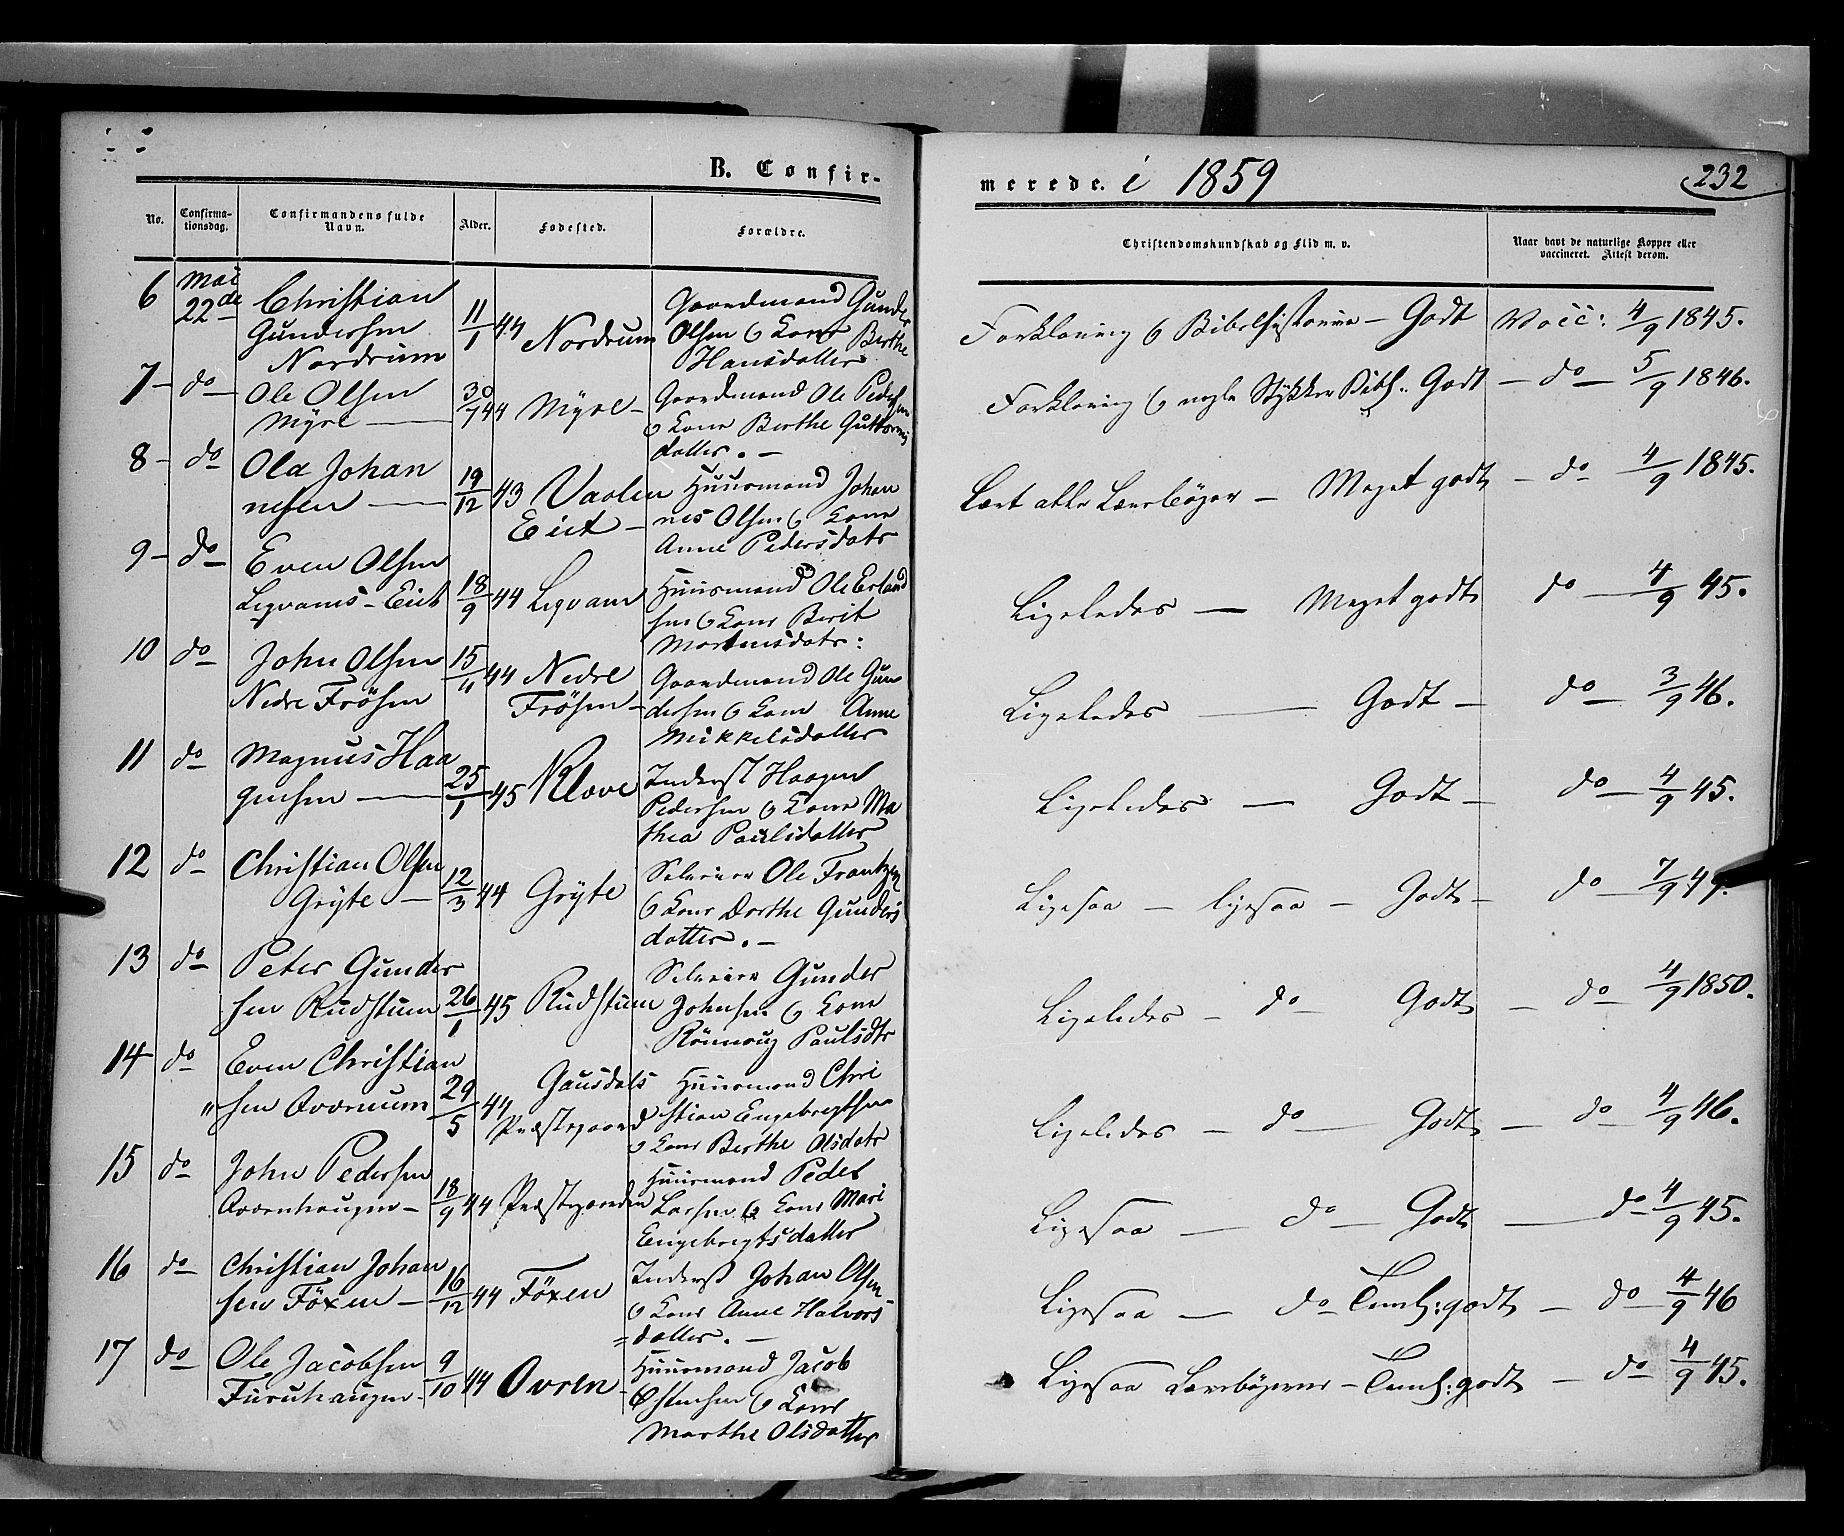 B. Confir-
merede. i 1859
232
No.
Confirma-
tionsdag.
Confirmandens fulde
Navn.
Alder.
Fødested.
Forældre.
Christendomskundskab og Flid m. v.
Naar havt de naturlige Kopper eller
vaccineret. Attest derom.
6 Mai 22de Christian
Gundersen
Nordrum
11/1 44 Nordrum
Gaardmand Gunder
Olsen & Kone Berthe
Hansdatter
Forklaring & Bibelhistorie - Godt Vacc: 4/9 1845.
7 - do - Ole Olsen
Myre
30/7 44 Myre -
Gaardmand Ole Pedersen
& Kone Berthe Guttorms
datter. -
Forklaring & nogle Stykker Bibh: Godt - do - 5/9 1846.
8 - do Ola Johan
nesen
19/12 43 Vaalen
Eiet -
Huusmand Johan
nes Olsen & Kone
Anne Pedersdatr
Læst alle Lærebøger - Meget godt - do 4/9 1845.
9 - do Even Olsen
Legvams-Eiet
18/9 44 Legvam
Huusmand Ole Erland
sen & Kone Berit
Mortensdatr:
Ligeledes - Meget godt do - 4/9 45.
10 do John Olsen
Nedre Frösen
15/11 44 Nedre
Frösen -
Gaardmand Ole Gun
dersen & Kone Anne
Mikkelsdatter
Ligeledes - Godt - do - 3/9 46.
11 do Magnus Haa
gensen
25/1 45 Klove
Inderst Haagen
Pedersen & Kone Ma
thea Paulsdatter
Ligeledes - Godt - do - 4/9 45.
12 do Christian Olsen
Gryte -
12/3 44 Gryte
Selveier Ole Frantzen
& Kone Dorthe Gunders
datter. -
Ligesaa - ligesaa - Godt - do - 7/9 47.
13 do Peter Gunder
sen Rudstuen
26/1 45 Rudstuen
Selveier Gunder
Johnsen & Kone
Rönnoug Paulsdtr
Ligeledes - do Godt - do 4/9 1850.
14 - do Even Christian
" sen Aavernum
29/5 44 Gausdals
Præstegaard
Huusmand Chri
stian Engebregtsen
& Kone Berthe Olsdatr
Ligeledes - do Godt - do 4/9 46.
15 do John Pedersen
Aavernhaugen -
18/9 44 Præstegaarden
Huusmand Peder
Larsen & Kone Mari
Engebregtsdatter
Ligesaa - do - Godt do 4/9 45.
16 do Christian Johan
sen Föxen -
16/12 44 Föxen
Inderst Johan Olsen
& Kone Anne Halvors
=datter. -
Ligesaa - do - Teml: godt - do 4/9 46
17 do Ole Jacobsen
Furuhaugen -
9/10 44 Ovren
Huusmand Jacob
Östensen & Kone
Marthe Olsdatter
Ligesaa Lærebøgerne - Teml: godt - do 4/9 45.